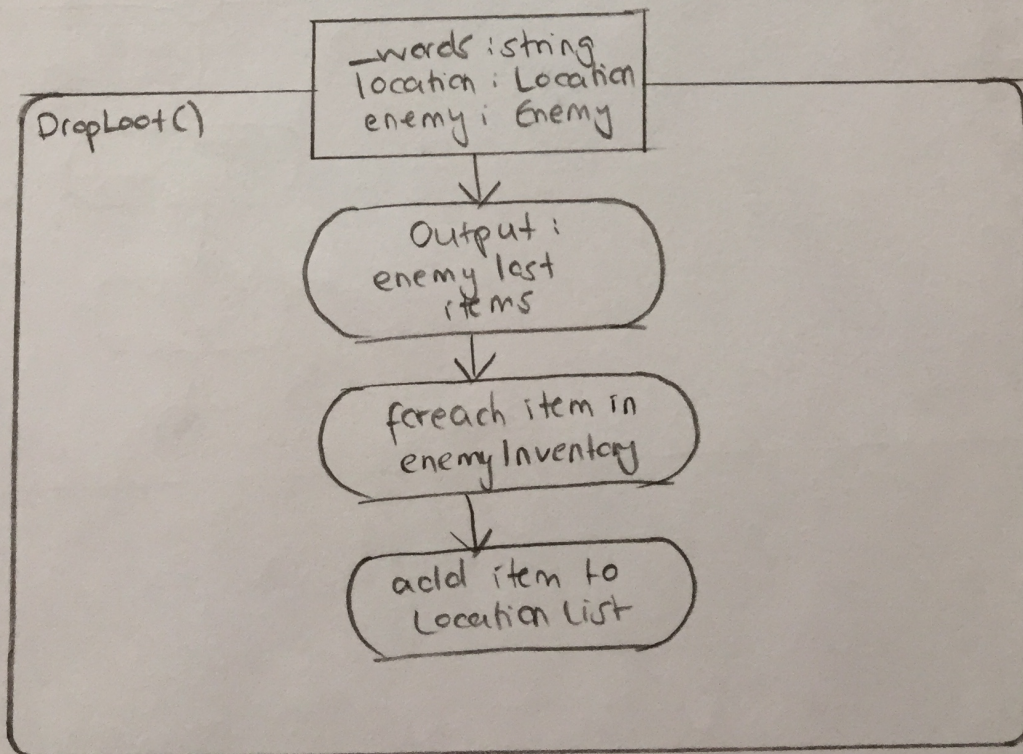 _words : string
location : Location
enemy : Enemy
DropLoot()
Output :
enemy lost
items
foreach item in
enemyInventory
add item to
Location List